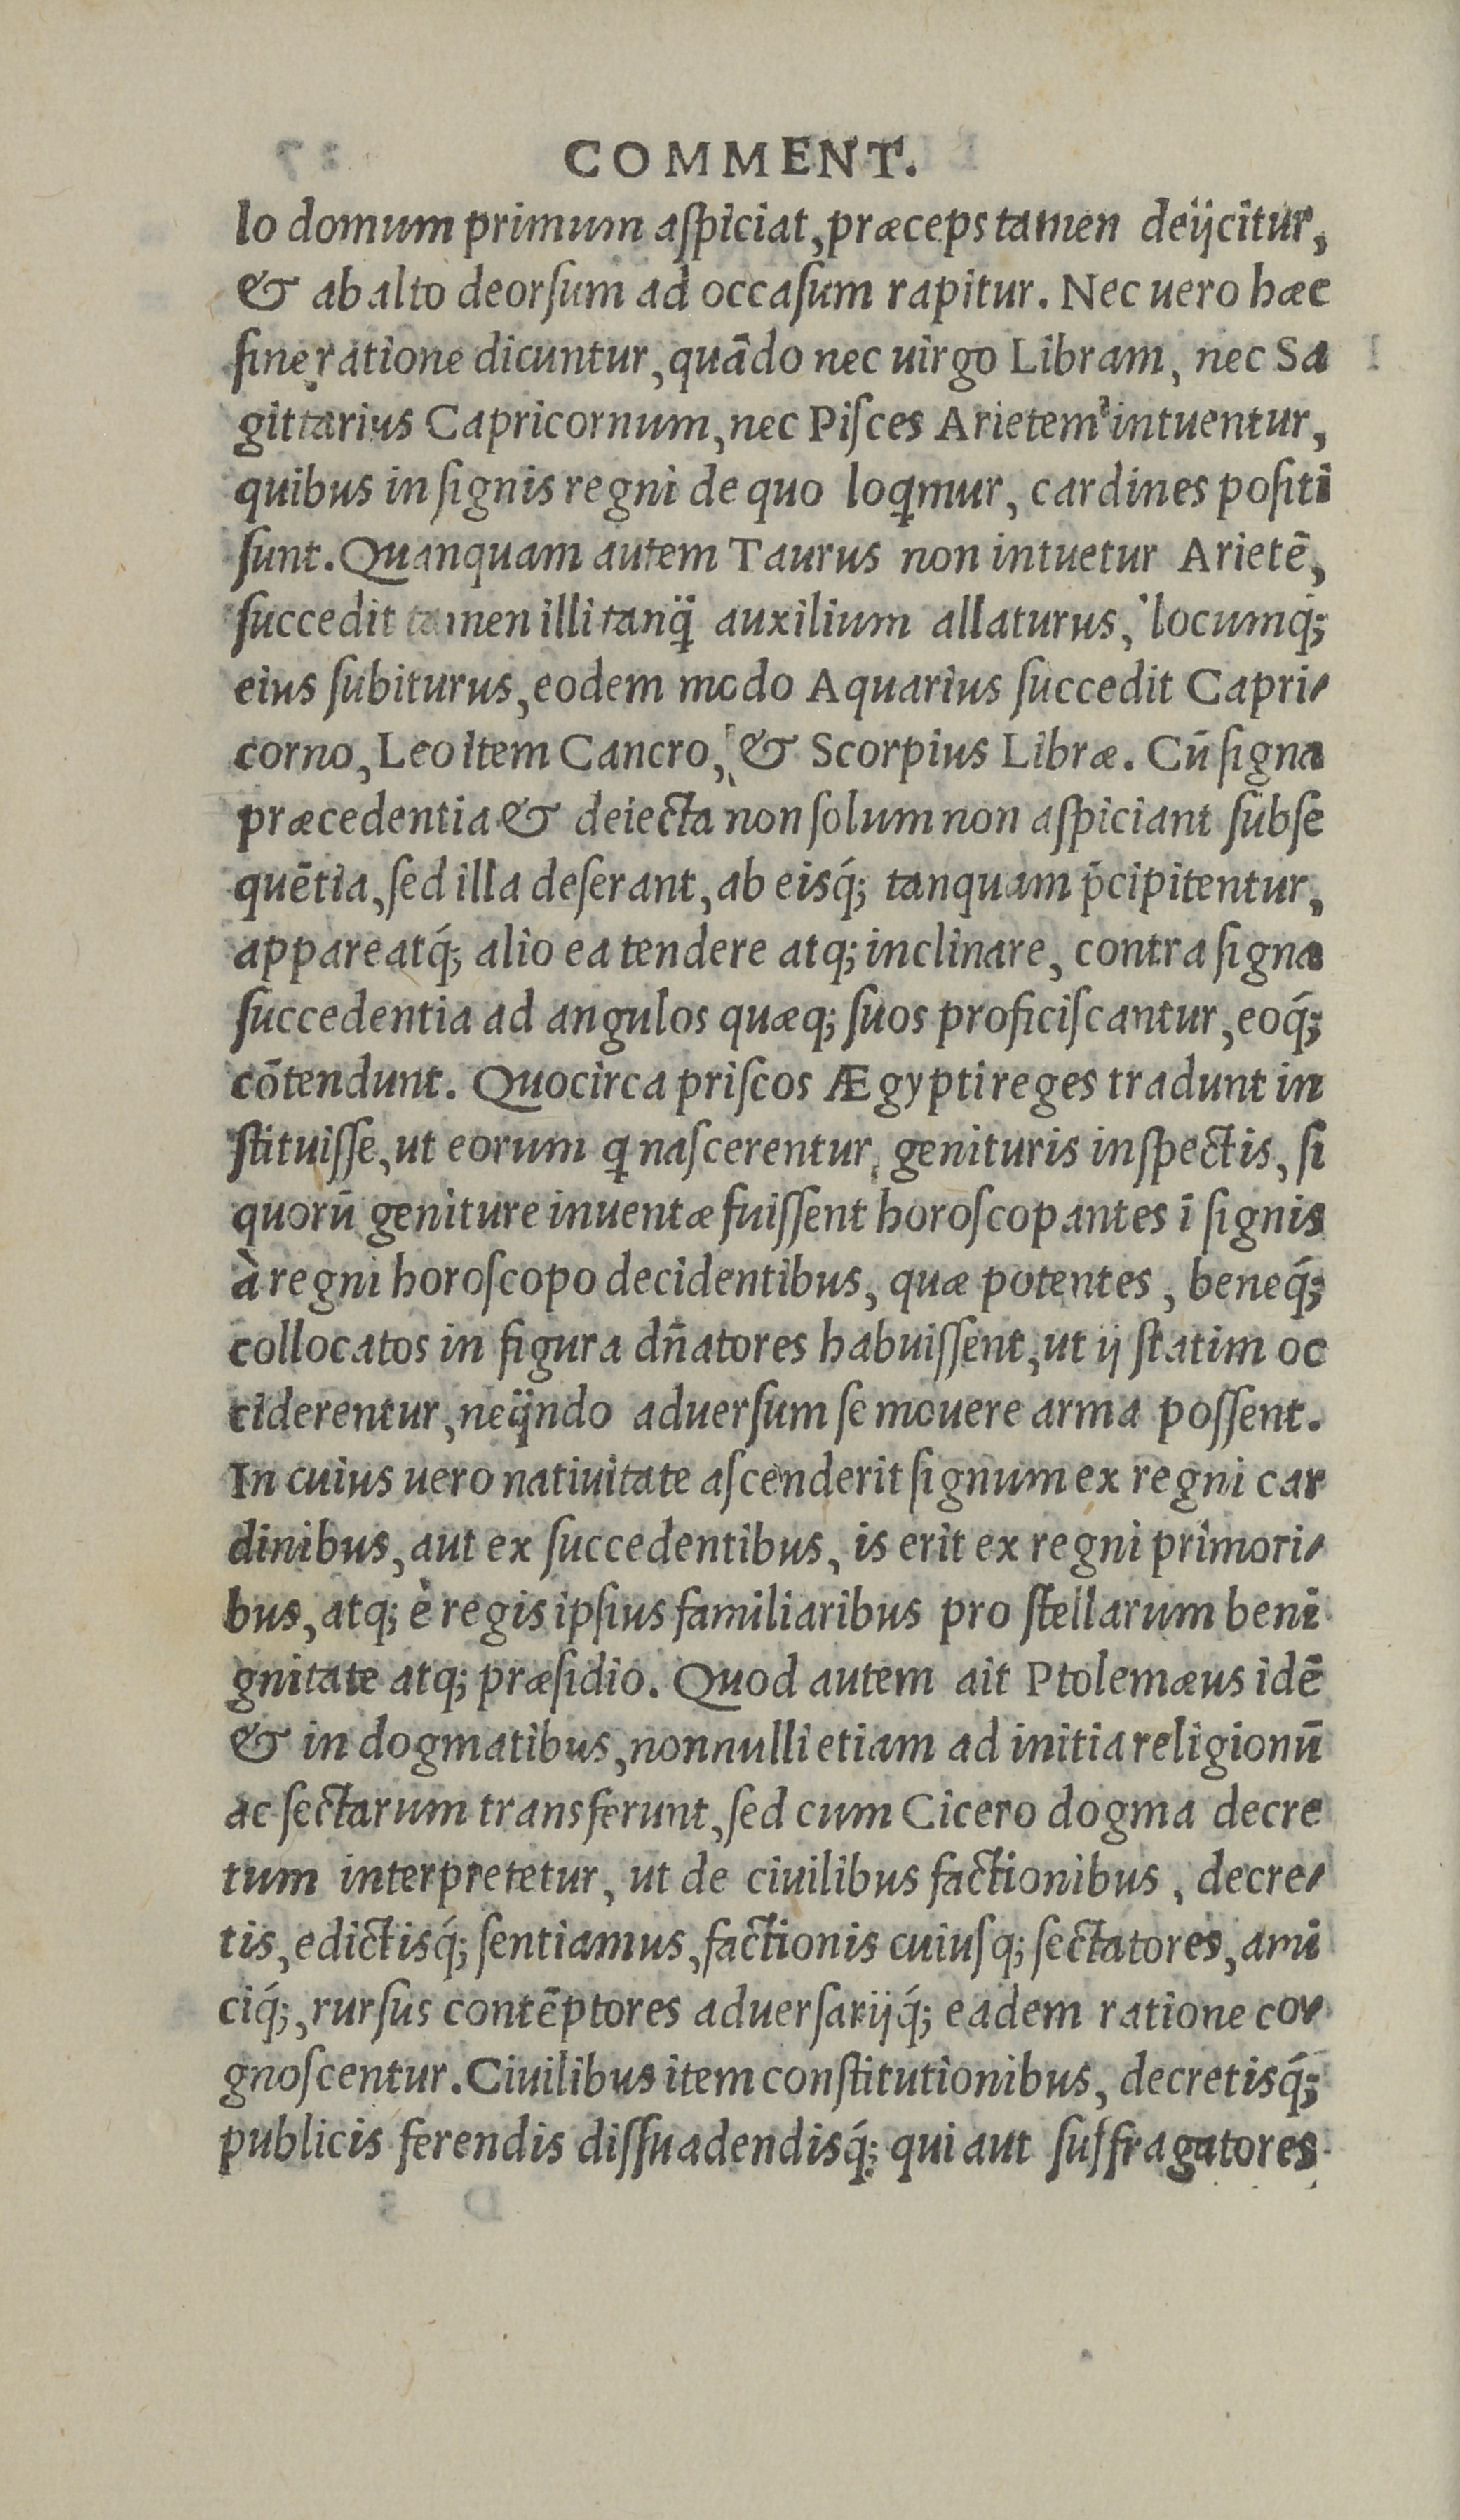 COMMENT.
lo domum primum aſpiciat, præceps tamen deijcitur,
& ab alto deorſum ad occaſum rapitur. Nec uero hæc
ſine ratione dicuntur, quãdo nec uirgo Libram, nec Sa
gittarius Capricornum, nec Piſces Arietem intuentur,
quibus in ſignis regni de quo loqmur, cardines poſiti
ſunt. Quanquam autem Taurus non intuetur Arietẽ,
ſuccedit tamen illi tanq̃ auxilium allaturus, locumq́;
eius ſubiturus, eodem modo Aquarius ſuccedit Capri-
corno, Leo item Cancro, & Scorpius Libræ. Cũ ſigna
præcedentia & deiecta non ſolum non aſpiciant ſubſe
quẽtia, ſed illa deſerant, ab eisq́; tanquam p̃cipitentur,
appareatq́; alio ea tendere atq; inclinare, contra ſigna
ſuccedentia ad angulos quæq; ſuos proficiſcantur, eoq́;
cõtendunt. Quocirca priſcos Ægypti reges tradunt in
ſtituiſſe, ut eorum q naſcerentur, genituris inſpectis, ſi
quorũ geniture inuentæ fuiſſent horoſcopantes ĩ ſignis
à regni horoſcopo decidentibus, quæ potentes, beneq́;
collocatos in figura dñatores habuiſſent, ut ij ſtatim oc
ciderentur, neq̃ndo aduerſum ſe mouere arma poſſent.
In cuius uero natiuitate aſcenderit ſignum ex regni car
dinibus, aut ex ſuccedentibus, is erit ex regni primori-
bus, atq; è regis ipſius familiaribus pro ſtellarum beni
gnitate atq; præſidio. Quod autem ait Ptolemæus idẽ
& in dogmatibus, nonnulli etiam ad initia religionũ
ac ſectarum transferunt, ſed cum Cicero dogma decre
tum interpretetur, ut de ciuilibus factionibus, decre-
tis, edictisq́; ſentiamus, factionis cuiuſq; ſectatores, ami
ciq́;, rurſus contẽptores aduerſarijq́; eadem ratione co-
gnoſcentur. Ciuilibus item conſtitutionibus, decretisq́;
publicis ferendis diſſuadendisq́; qui aut ſuffragatores